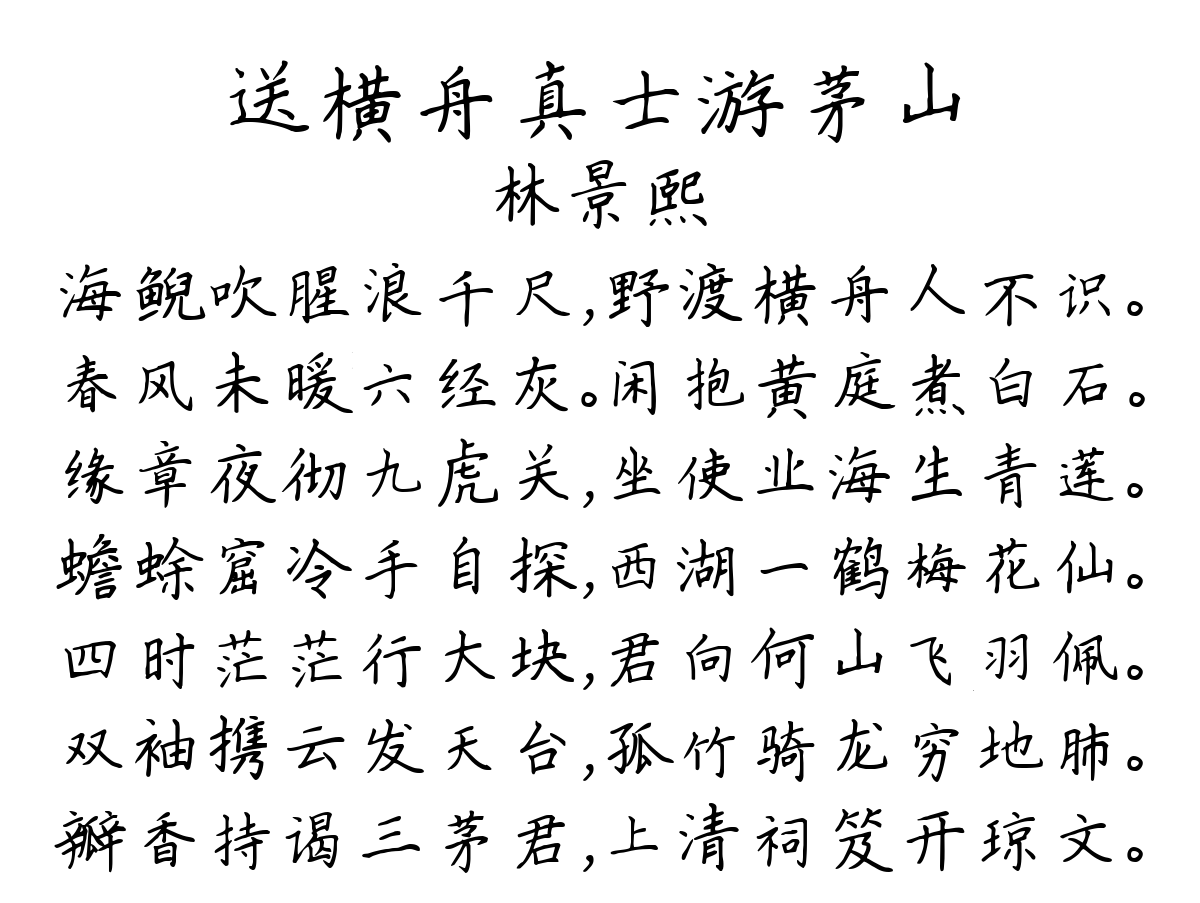 送横舟真士游茅山
林景熙
海鲵吹腥浪千尺,野渡横舟人不识。
春风未暖六经灰。闲抱黄庭煮白石。
缘章夜彻九虎关,坐使业海生青莲。
蟾蜍窟冷手自探,西湖一鹤梅花仙。
四时茫茫行大块,君向何山飞羽佩。
双袖携云发天台,孤竹骑龙穷地肺。
瓣香持谒三茅君,上清祠笈开琼文。